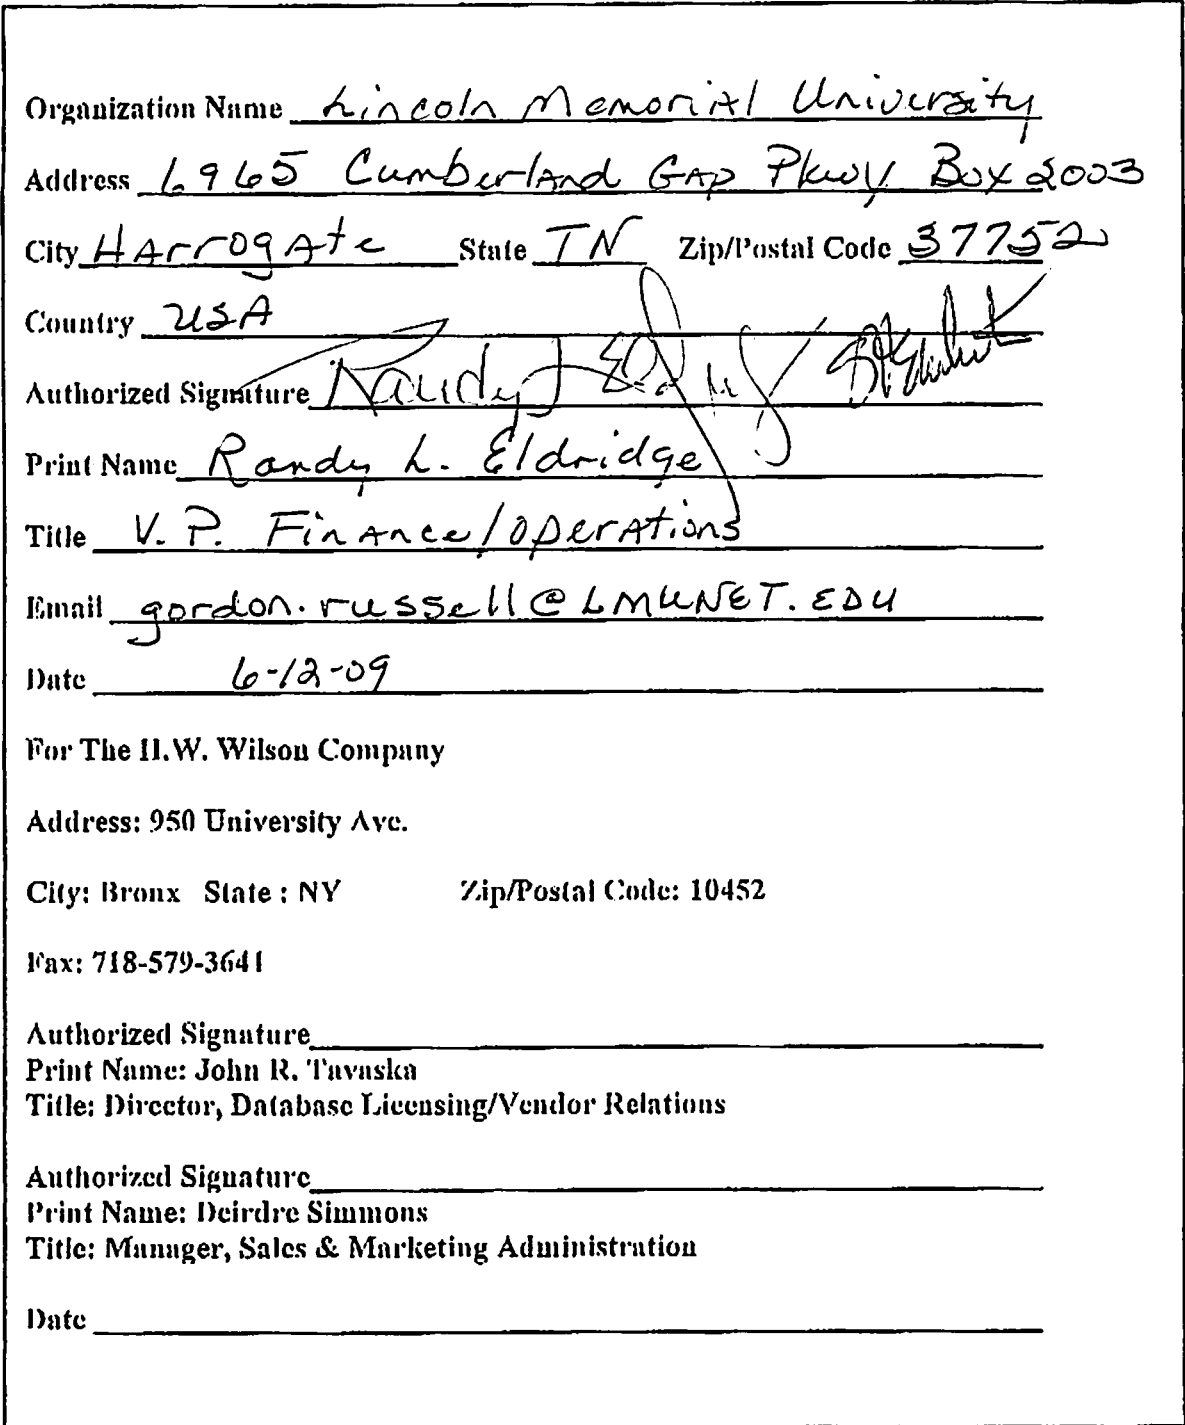 Organization Name Lincoln Memorial University
Address 6965 Cumberland Gap Pkwy Box 2003
City Harrogate State TN Zip/Postal Code 37752
Country USA
Authorized Signature Randy
Print Name Randy L. Eldridge
Title V. P. Finance/Operations
Email gordon.russell@LMUNET.EDU
Date 6-12-09
For The H.W. Wilson Company
Address: 950 University Ave.
City: Bronx State : NY Zip/Postal Code: 10452
Fax: 718-579-3641
Authorized Signature
Print Name: John R. Tavaska
Title: Director, Database Licensing/Vendor Relations
Authorized Signature
Print Name: Deirdre Simmons
Title: Manager, Sales & Marketing Administration
Date